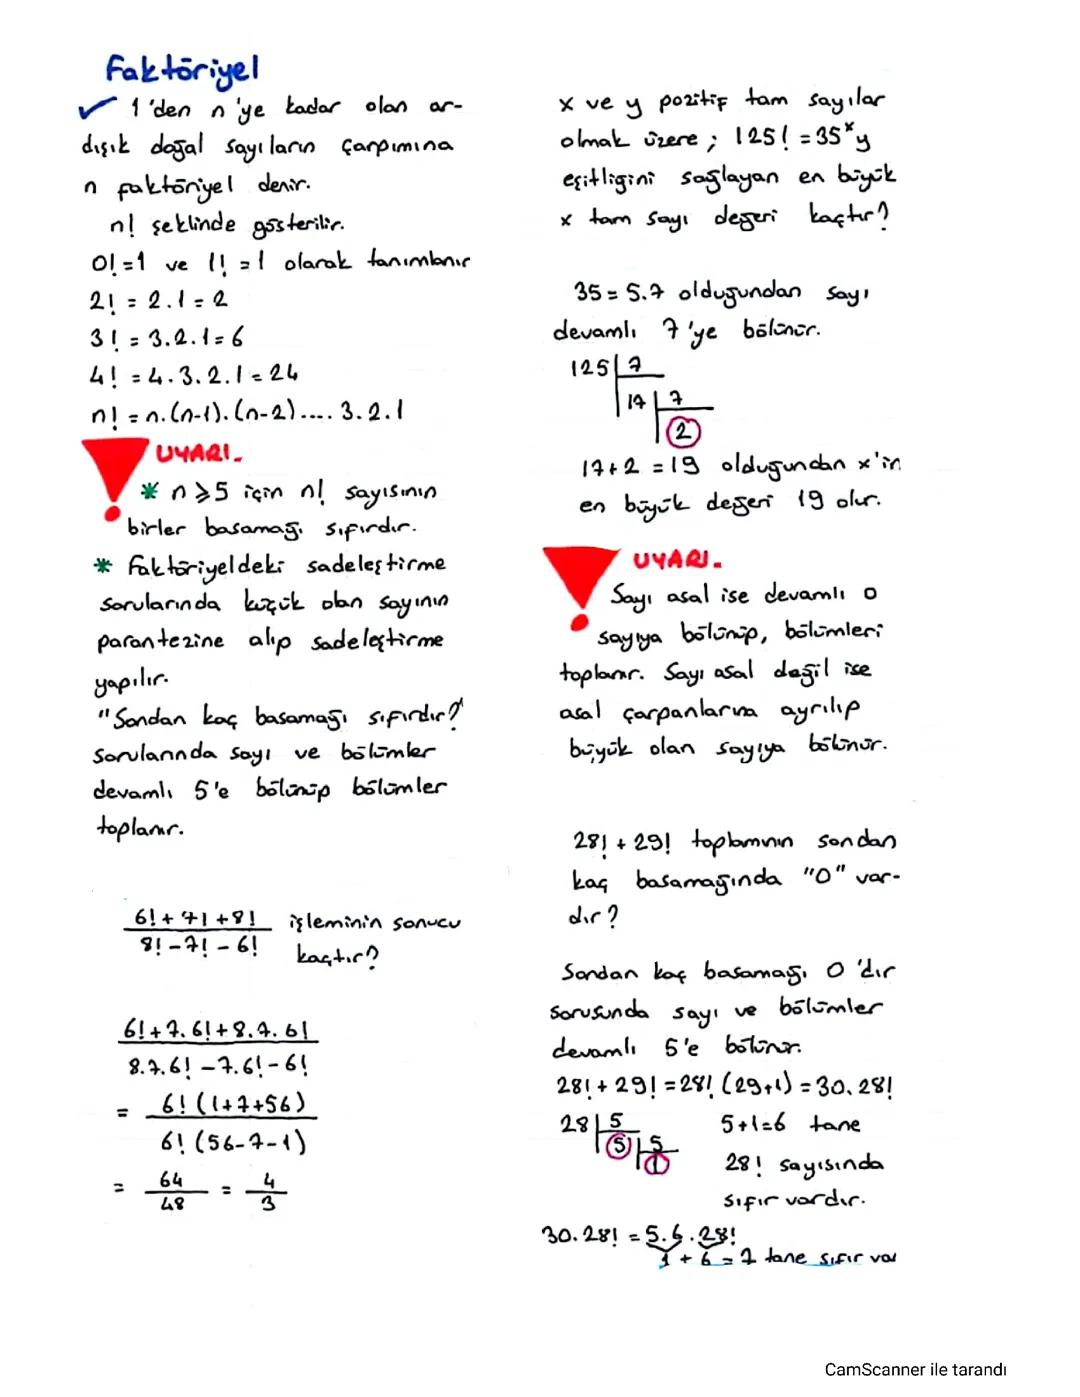 Faktöriyel
✓ 1'den n'ye kadar olan ar-
dışık doğal sayıların çarpımına
n faktöriyel denir.
n! şeklinde gösterilir.
0! = 1 ve 1! = 1 olarak tanımlanır
2! = 2.1 = 2
3! = 3.2.1 = 6
4! = 4.3.2.1 = 24
n! = n.(n-1).(n-2).... 3.2.1
UYARI.
* n ≥ 5 için n! sayısının
birler basamağı sıfırdır.
* Faktöriyeldeki sadeleştirme
sorularında küçük olan sayının
parantezine alıp sadeleştirme
yapılır.
"Sondan kaç basamağı sıfırdır?"
sorularında sayı ve bölümler
devamlı 5'e bölünüp bölümler
toplanır.
6! + 7! + 8! / 8! - 7! - 6! işleminin sonucu
kaçtır?
6! + 7.6! + 8.7.6!
8.7.6! - 7.6! - 6!
= 6! (1+7+56)
6! (56-7-1)
= 64/48 = 4/3
x ve y pozitif tam sayılar
olmak üzere ; 125! = 35ˣy
eşitliğini sağlayan en büyük
x tam sayı değeri kaçtır?
35 = 5.7 olduğundan sayı
devamlı 7'ye bölünür.
125 7
17 7
2
17+2 = 19 olduğundan x'in
en büyük değeri 19 olur.
UYARI.
Sayı asal ise devamlı o
sayıya bölünüp, bölümleri
toplanır. Sayı asal değil ise
asal çarpanlarına ayrılıp
büyük olan sayıya bölünür.
28! + 29! toplamının sondan
kaç basamağında "0" var-
dır?
Sondan kaç basamağı 0'dır
sorusunda sayı ve bölümler
devamlı 5'e bölünür.
28! + 29! = 28! (29+1) = 30.28!
28 5
5 5
1
5+1=6 tane
28! sayısında
sıfır vardır.
30.28! = 5.6.28!
1 + 6 = 7 tane sıfır var
CamScanner ile tarandı